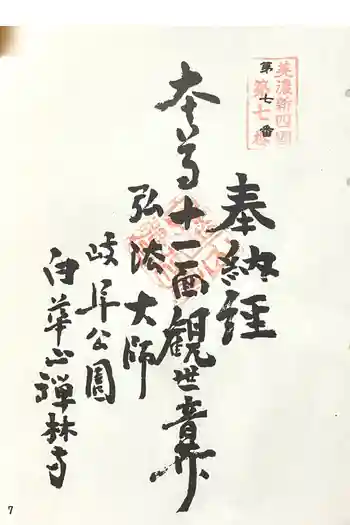 美濃新四国
第七番
第七番
奉納経
本尊十一面観世音菩薩
弘法大師
岐阜公園
白華山禅林寺
7